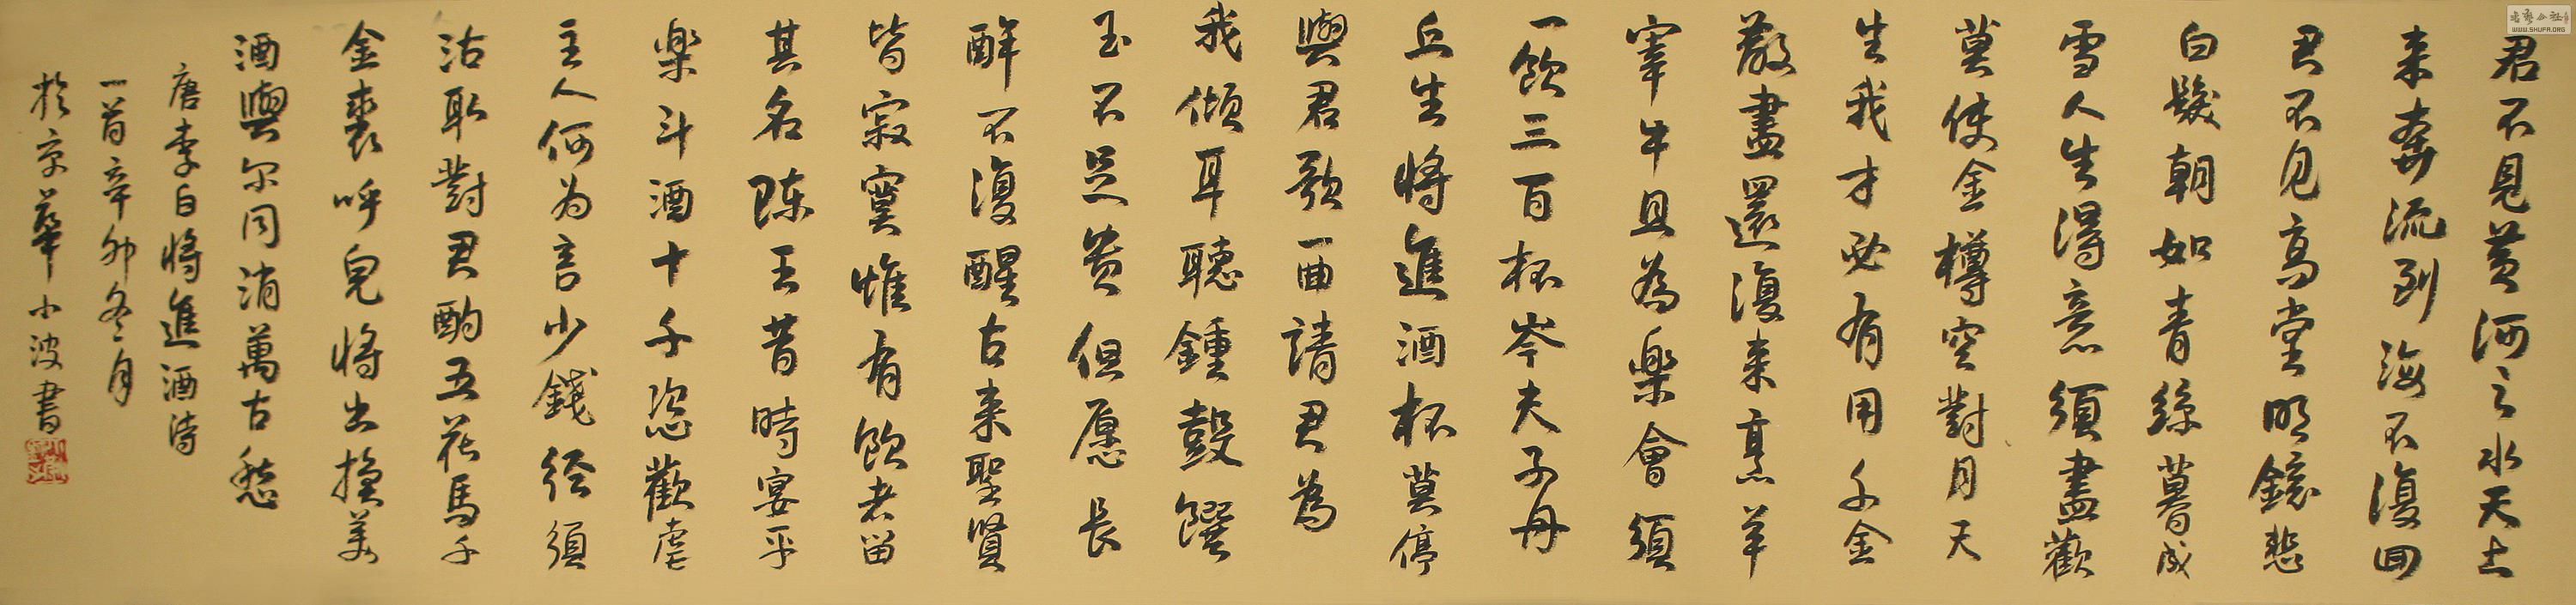 君不見黄河之水天上
来奔流到海不復回
君不见高堂明鏡悲
白髮朝如青絲暮成
雪人生得意須盡歡
莫使金樽空對月天
生我才必有用千金
散盡還復来烹羊
宰牛且為樂會須
一飲三百杯岑夫子丹
丘生將進酒杯莫停
與君歌一曲請君為
我傾耳聽鍾鼓饌
玉不足贵但愿長
醉不復醒古来聖賢
皆寂寞惟有飲者留
其名陈王昔時宴平
樂斗酒十千恣歡虐
主人何为言少錢径須
沽取對君酌五花馬千
金裘呼兒將出換美
酒與尔同消萬古愁
唐李白將進酒诗
一首辛卯冬月
於京華小波書
WWW.SHUFA.ORG